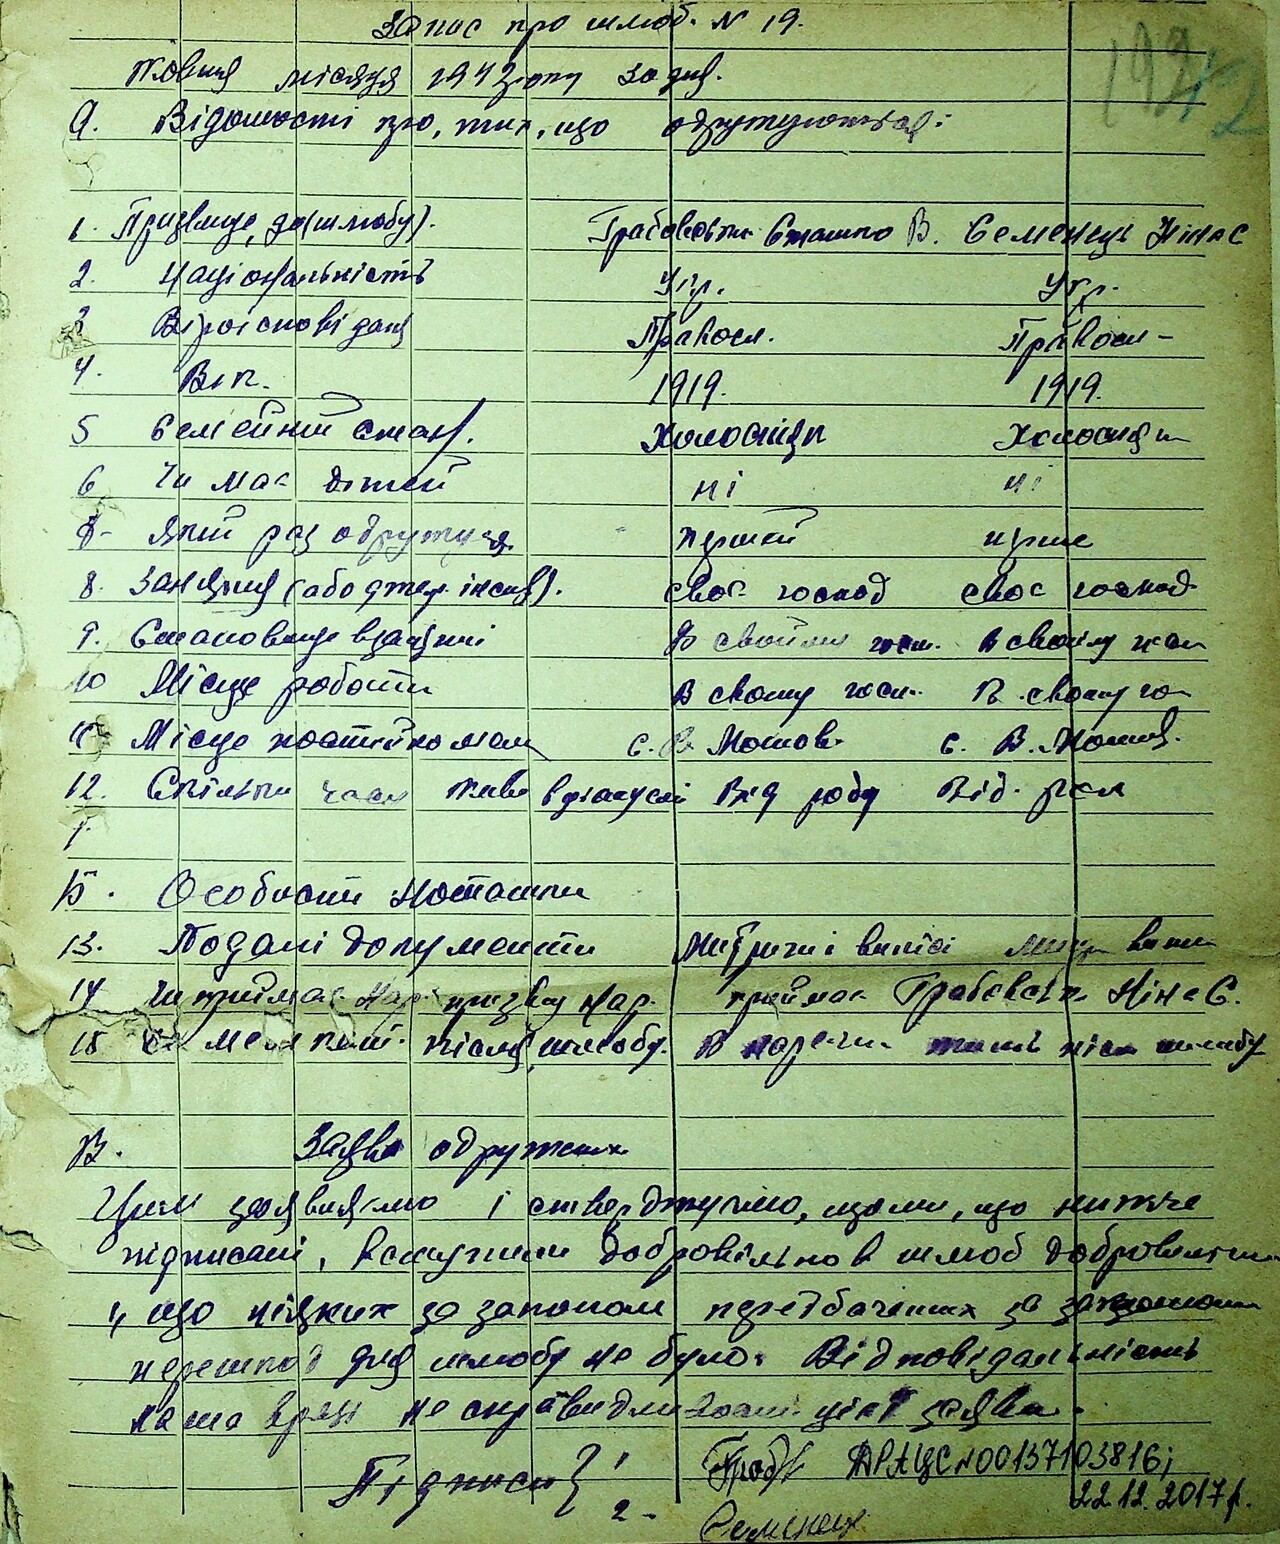 Запис про шлюб. N 19.
1942
Жовтня місяця 1942 року 30 дня.
А. Відомості про, тих, що одружуються:
1. Призвище, до(шлюбу). Грабовськи Сташко В. Семенець Ніна С
2. Національність Укр. Укр.
3 Віроісповідання Правосл. Правосл-
4. Вік. 1919. 1919.
5 Семейний стан. Холостяк Холостяк
6 Чи має дітей ні ні
8- Який раз одружуєця перший перше
8. Заняття (або джер. існув). своє господ своє господ.
9. Становище в занятті В свойму госп. В свойму гос
10 Місце роботи В свому госп. В свому го-
11 Місце постійно с. В. Мотов. с. В. Мотов.
12. Скільки часу живе Від роду Від. род
Б. Особисті
13. Подані документи Метричні виписі Метр випи
14 Чи приймає нар. призву нар. приймає Грабовськ. Ніна С.
15 після шлюбу. В нареч. жить після шлюбу
В. Заява одружених
Цим заявляємо і стверджуємо, що ми, що нижче
підписані, вступили добровільно в шлюб добровільно
і, що ніяких за законом передбачених за законом
перешкод для шлюбу не було. Відповідальність
наша в разі не справидливості цієї заяви.
Підписи } 1 Граб ДРАЦС N00137103816;
22.12.2017р.
2- Семенець